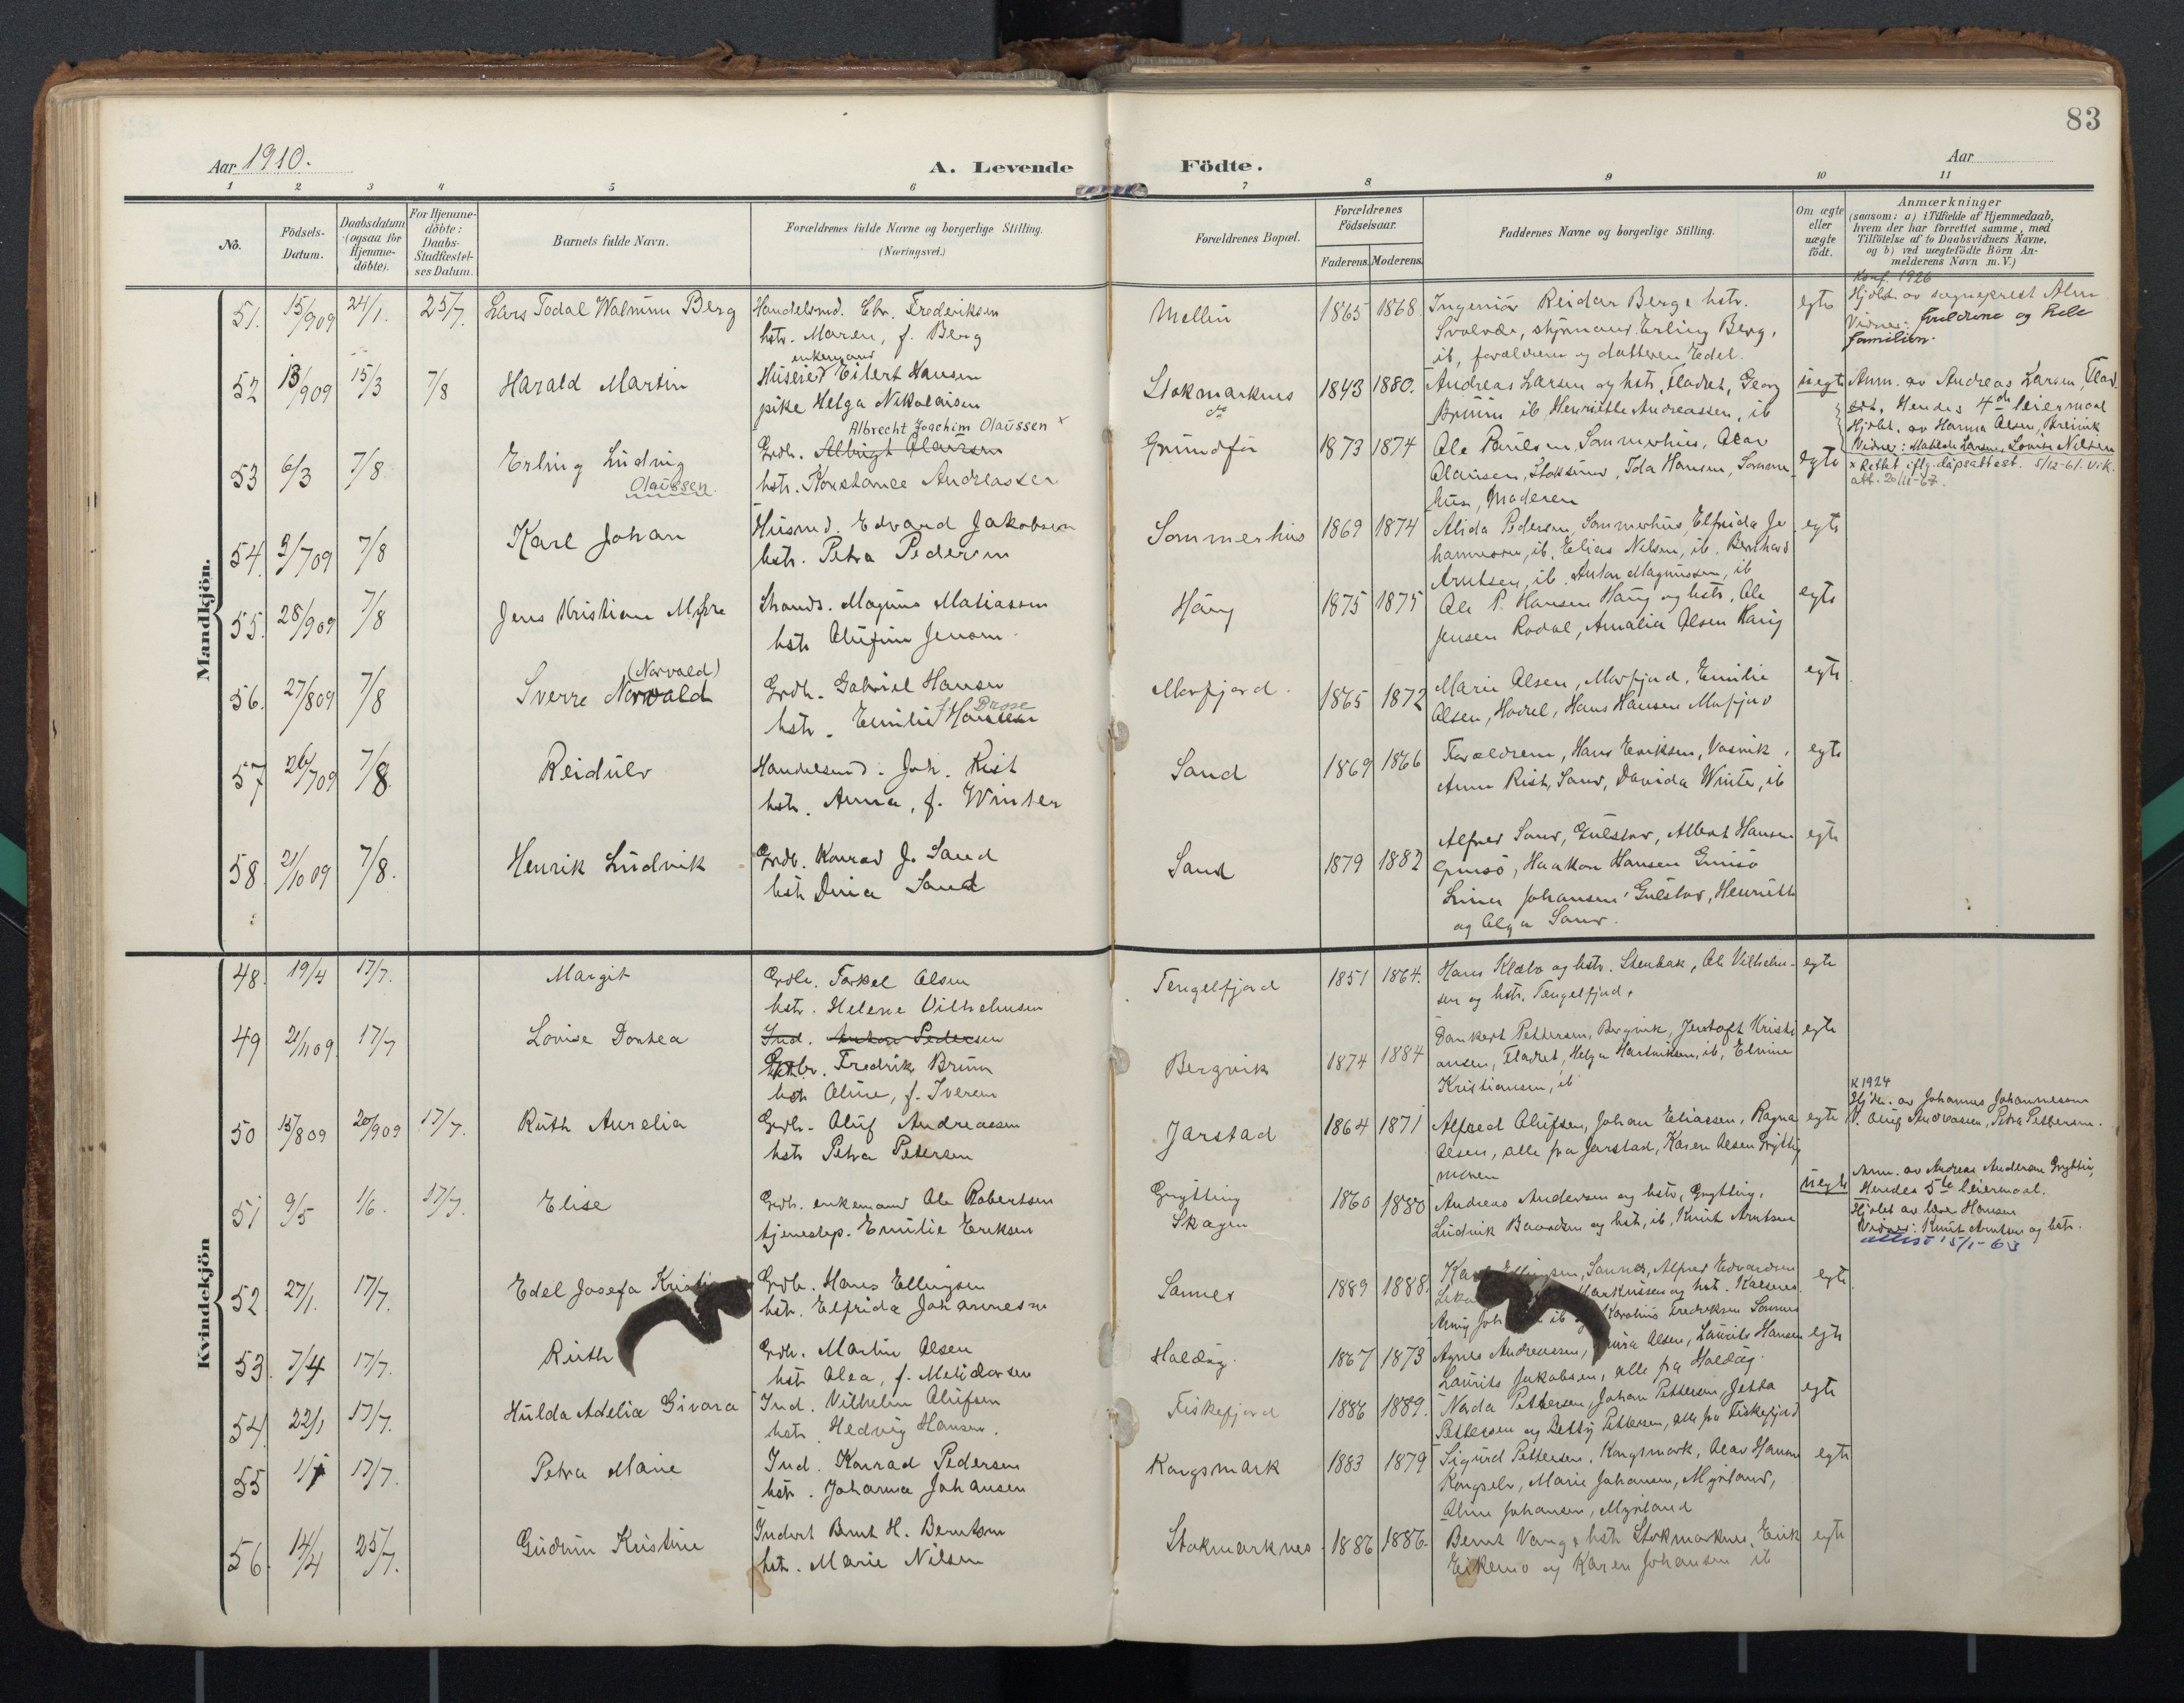 83
Aar 1910.
A. Levende Födte.
Aar
1 2 3 4 5 6 7 8 9 10 11
No.
Födsels-
Datum.
Daabsdatum
(ogsaa for
Hjemme-
döbte).
For Hjemme-
döbte:
Daabs-
Stadfæstel-
ses Datum.
Barnets fulde Navn.
Forældrenes fulde Navne og borgerlige Stilling.
(Næringsvei.)
Forældrenes Bopæl.
Forældrenes
Födselsaar.
Faderens. Moderens.
Faddernes Navne og borgerlige Stilling.
Om ægte
eller
uægte
födt.
Anmærkninger
(saasom: a) i Tilfælde af Hjemmedaab,
hvem der har forrettet samme, med
Tilföielse af to Daabsvidners Navne,
og b) ved uægtefödte Börn An-
melderens Navn m. V.)
Mandkjön.
51. 15/909 24/1. 25/7. Lars Todal Walnum Berg
Handelsmd. Chr. Frederiksen
hstr. Maren, f. Berg
Mellin 1865 1868.
Ingeniör Reidar Berge hstr.
Svolvær, styrmand Erling Berg,
ib, forældrene og datteren Edel.
egte
Konf. 1926
Hjdbt. av sogneprest Alm
Vidner: foreldrene og hele
familien.
52 13/909 15/3 7/8 Harald Martin
enkemand
Huseier Eilert Hansen
pike Helga Nikolaisen
Stokmarknes 1843 1880.
do
Andreas Larsen og hstr. Fladset, Georg
Bruun ib Henriette Andreassen, ib
uegte
Anm. av Andreas Larsen, Flad-
set. Hendes 4de leiermaal
Hjdbt. av Hanna Olsen, Breivik
Vidner: Matilde Larsen, Lovise Nilsen
53 6/3 7/8 Erling Ludvig
Olaussen
Albrecht Joachim Olaussen x
Grdb. Albrigt Olaussen
hstr. Konstance Andreassen
Grundfør 1873 1874
Ole Paulsen Sommerhus, Olav
Olausen, Stoksund, Ida Hansen, Sommer-
hus, Moderen
egte
x Rettet iflg. dåpsattest. 5/12-61. Vik.
att. 20/11-67.
54. 3/709 7/8 Karl Johan
Husmd. Edvard Jakobsen
hstr. Petra Pedersen
Sommerhus 1869 1874
Alida Pedersen, Sommerhus, Elfrida Jo
hannesen, ib, Elias Nilsen, ib. Bernhard
Arntsen, ib. Anton Magnussen, ib
egte
55. 28/909 7/8 Jens Kristian Myhre
Strands. Magnus Matiassen
hstr Olufine Jensen
Haug 1875 1875
Ole P. Hansen Haug og hstr, Ole
Jensen Rødal, Amalia Olsen Haug
egte
56. 27/809 7/8 (Norvald)
Sverre Norvald
Grdb. Gabriel Hansen
hstr. Emilie Hansen
Morfjord. 1865 1872
Marie Olsen, Morfjord, Emilie
Olsen, Hovd, Hans Hansen Morfjord
egte
57 26/709 7/8 Reidulv
Handelsmd. Joh. Rist
hstr. Anna, f. Winter
Sand 1869 1866
Forældrene, Hans Eriksen, Vasvik,
Anna Rist, Sand, Davida Winter, ib
egte
58 21/10 09 7/8. Henrik Ludvik
Grdb. Konrad J. Sand
hstr Dina Sand
Sand 1879 1882
Alfred Sand, Gulstad, Albert Hansen
Gimsö, Haakon Hansen Gimsö
Lina Johansen Gulstad, Henriette
og Olga Sand.
egte
Kvindekjön
48. 19/4 17/7. Margit
Grdb. Torkel Olsen
hstr. Helene Vilhelmsen
Tengelfjord 1851 1864.
Hans Klæbo og hstr. Stenbak, Ole Vilhelm-
sen og hstr. Tengelfjord.
egte
49 21/1109 17/7 Lovise Dortea
Ind. Anton Pedersen
Grdbr. Fredrik Bruun
hstr Oline, f. Iversen
Bergvik 1874 1884
Dankert Pettersen, Bergvik, Jentoft Kristi
ansen, Fladset, Helga Hartviksen, ib, Elvine
Kristiansen, ib
egte
50 15/809 20/909 17/7. Ruth Aurelia
Grdb. Oluf Andreassen
hstr Petra Petersen
Jarstad 1864 1871
Alfred Olufsen, Johan Eliassen, Ragna
Olsen, alle fra Jarstad, Karen Olsen Grytting
moren
egte
K 1924
Hjdn. av Johannes Johannessen
V. Oluf Andreassen, Petra Pettersen.
51 9/5 1/6. 17/7. Elise
Grdb. enkemand Ole Robertsen
tjenestep. Emilie Eriksen
Grytting
Skagen
1860 1880
Andreas Andersen og hstr, Grytting,
Ludvik Baardsen og hstr, ib, Knut Arntsen
uegte
Anm. av Andreas Andersen Grytting,
Hendes 5te leiermaal.
Hjdbt av lærer Hansen
Vidner: Knut Arntsen og hstr.
attest 15/1-63
52. 27/1. 17/7. Edel Josefa
Grdb. Hans Ellingsen
hstr. Elfrida Johannessen
Sannes 1889 1888.
Ellingsen, Sannes, Alfred Edvardsen
Markussen og hst. Kalsnes
ib Karoline Fredriksen Sannes
egte
53. 7/4 17/7. Ruth
Grdb. Martin Olsen
hstr Olea, f. Melidorsen
Holdøg. 1867 1873
Agnes Andreassen, Olsen, Laurits Hansen
Laurits Jakobsen, alle fra Holdøg.
egte
54. 22/1 17/7. Hulda Adelia Givara
Ind. Vilhelm Olufsen
hstr. Hedvig Hansen.
Fiskefjord 1886 1889.
Nada Pettersen, Johan Pettersen, Jetta
Pettersen og Betty Pettersen, alle fra Fiskefjord
egte
55 17/7. Petra Marie
Ind. Konrad Pedersen
hstr. Johanna Johansen
Kongsmark 1883 1879
Sigurd Pettersen, Kongsmark, Olav Hansen
Kongselv, Marie Johansen, Myrland,
Oline Johansen, Myrland
egte
56. 14/4 25/7. Gudrun Kristine
Inderst Bernt H. Berntsen
hstr. Marie Nilsen
Stokmarknes 1886 1886.
Bernt Vang & hstr Stokmarknes, Erik
Eikemo og Karen Johansen ib
egte